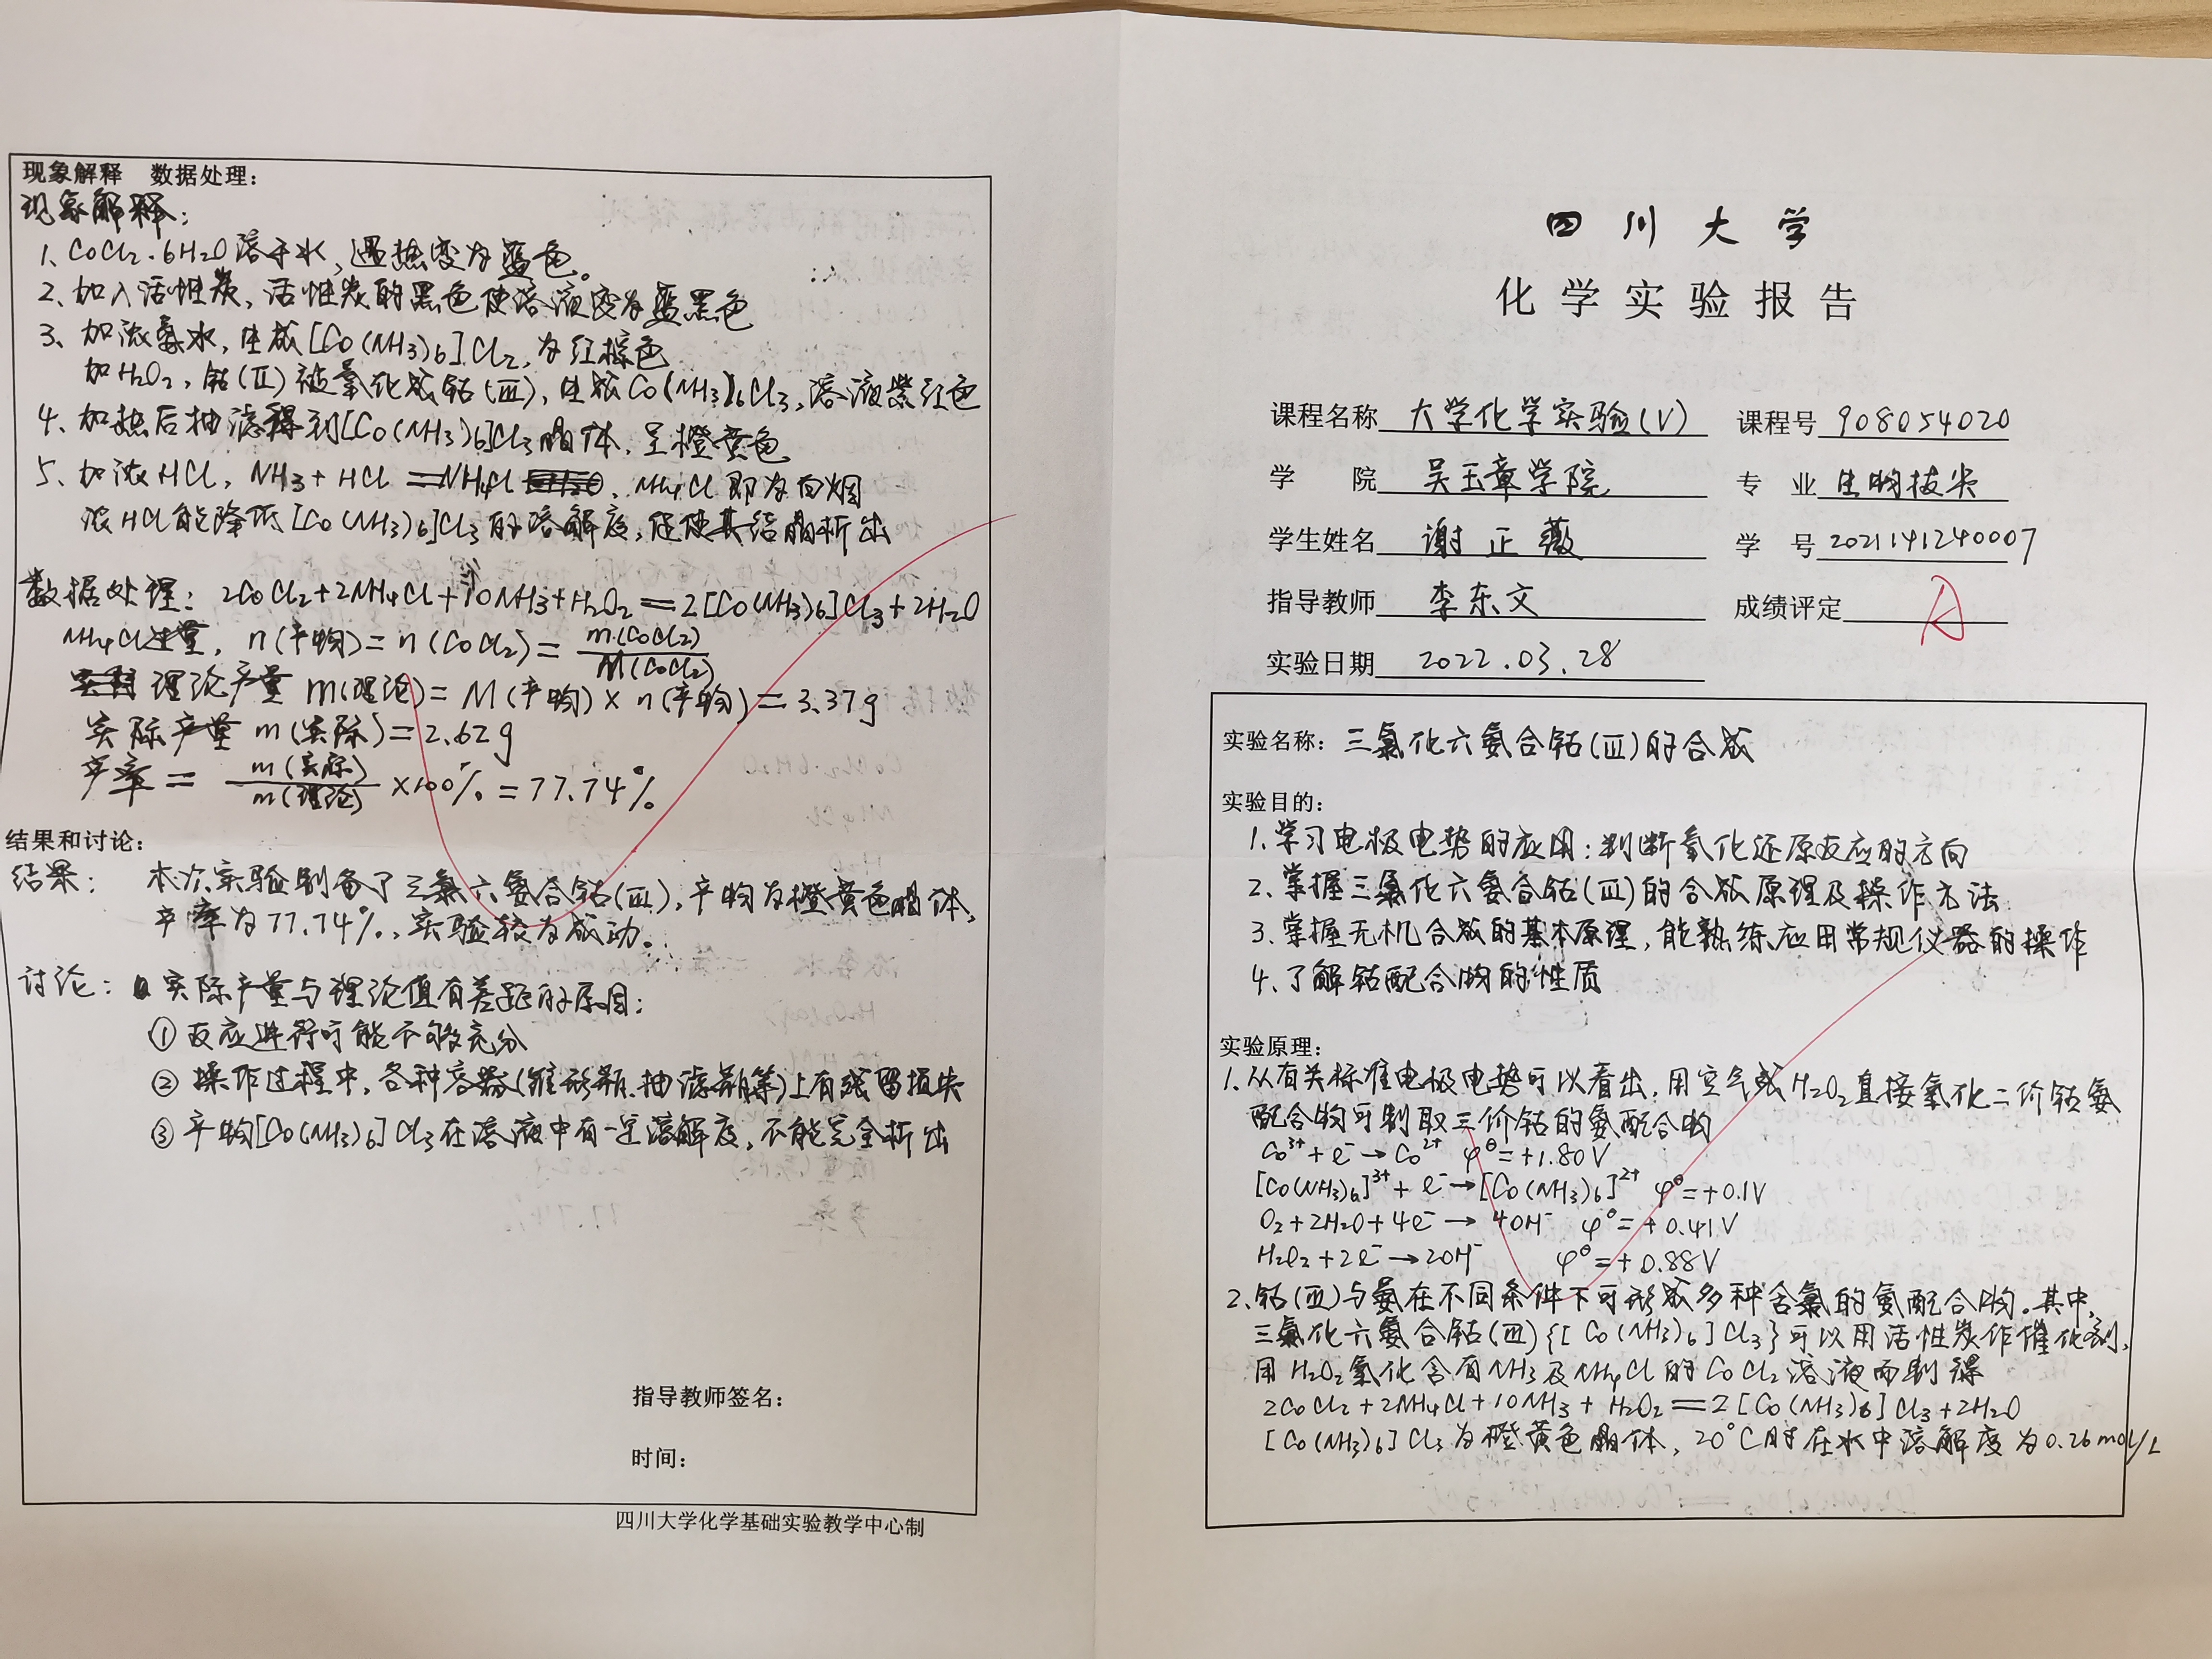 现象解释 数据处理：
现象解释：
1、CoCl₂·6H₂O溶于水，遇热变为蓝色。
2、加入活性炭，活性炭的黑色使溶液变为蓝黑色
3、加浓氨水，生成[Co(NH₃)₆]Cl₂，为红棕色
加H₂O₂，钴(Ⅱ)被氧化成钴(Ⅲ)，生成Co(NH₃)₆Cl₃，溶液紫红色
4、加热后抽滤得到[Co(NH₃)₆]Cl₃晶体，呈橙黄色
5、加浓HCl，NH₃+HCl=NH₄Cl，NH₄Cl即为白烟
浓HCl能降低[Co(NH₃)₆]Cl₃的溶解度，促使其结晶析出
数据处理：2CoCl₂+2NH₄Cl+10NH₃+H₂O₂=2[Co(NH₃)₆]Cl₃+2H₂O
NH₄Cl过量，n(产物)=n(CoCl₂)=m(CoCl₂)/M(CoCl₂)
理论产量 m(理论)=M(产物)×n(产物)=3.37g
实际产量 m(实际)=2.62g
产率=m(实际)/m(理论)×100%=77.74%
结果和讨论：
结果：本次实验制备了三氯六氨合钴(Ⅲ)，产物为橙黄色晶体，
产率为77.74%，实验较为成功。
讨论：实际产量与理论值有差距的原因：
①反应进行可能不够充分
②操作过程中，各种容器(锥形瓶、抽滤瓶等)上有残留损失
③产物[Co(NH₃)₆]Cl₃在溶液中有一定溶解度，不能完全析出
指导教师签名：
时间：
四川大学化学基础实验教学中心制
四川大学
化学实验报告
课程名称 大学化学实验(V) 课程号 908054020
学 院 吴玉章学院 专 业 生物拔尖
学生姓名 谢正薇 学 号 2021141240007
指导教师 李东文 成绩评定 A
实验日期 2022.03.28
实验名称：三氯化六氨合钴(Ⅲ)的合成
实验目的：
1、学习电极电势的应用：判断氧化还原反应的方向
2、掌握三氯化六氨合钴(Ⅲ)的合成原理及操作方法
3、掌握无机合成的基本原理，能熟练应用常规仪器的操作
4、了解钴配合物的性质
实验原理：
1、从有关标准电极电势可以看出，用空气或H₂O₂直接氧化二价钴氨
配合物可制取三价钴的氨配合物
Co³⁺+e⁻→Co²⁺ φ^θ=+1.80V
[Co(NH₃)₆]³⁺+e⁻→[Co(NH₃)₆]²⁺ φ^θ=+0.1V
O₂+2H₂O+4e⁻→4OH⁻ φ^θ=+0.41V
H₂O₂+2e⁻→2OH⁻ φ^θ=+0.88V
2、钴(Ⅲ)与氨在不同条件下可形成多种含氯的氨配合物。其中，
三氯化六氨合钴(Ⅲ){[Co(NH₃)₆]Cl₃}可以用活性炭作催化剂，
用H₂O₂氧化含有NH₃及NH₄Cl的CoCl₂溶液而制得
2CoCl₂+2NH₄Cl+10NH₃+H₂O₂=2[Co(NH₃)₆]Cl₃+2H₂O
[Co(NH₃)₆]Cl₃为橙黄色晶体，20°C时在水中溶解度为0.26mol/L